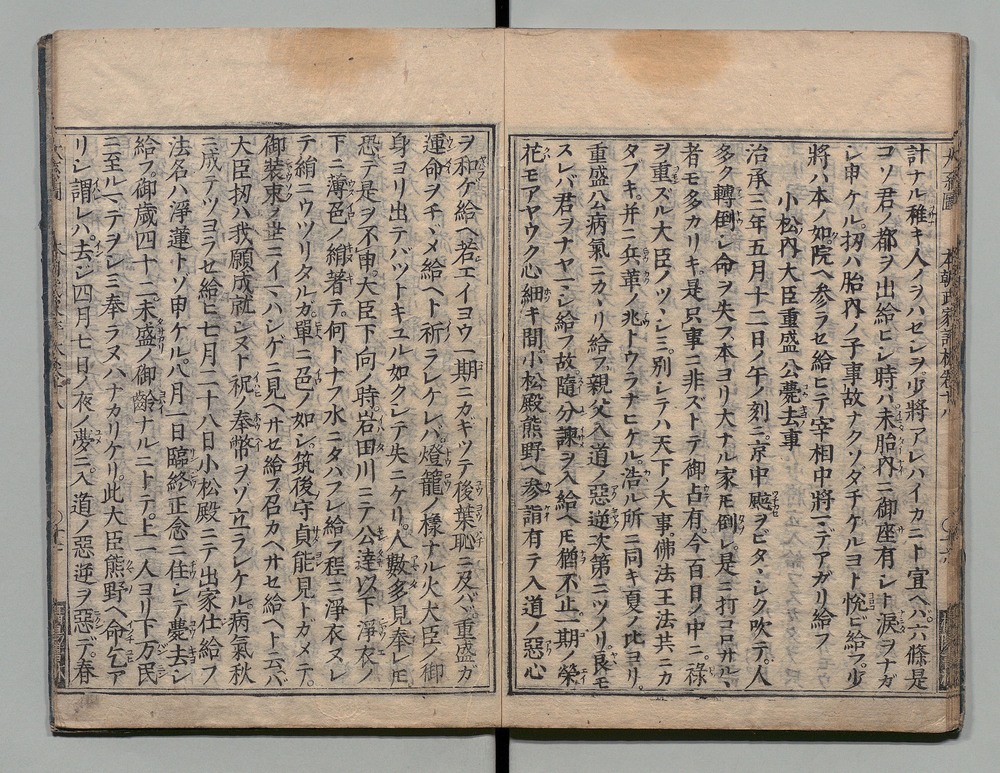 計ナル稚キ人ノヲハセシヲ少將アレハイカニト宣ヘハ六條是
コソ君ノ都ヲ出給ヒシ時ハ未胎內ニ御座有シト淚ヲナガ
シ申ケル扨ハ胎內ノ子事故ナクソタチケルヨト悅ビ給フ少
將ハ本ノ如院ヘ參ラセ給ヒテ宰相中將ニデアガリ給フ
小松內大臣重盛公薨去事
治承三年五月十二日ノ午ノ刻ニ京中颷ヲビタヽシク吹テ人
多ク轉倒シ命ヲ失フ本ヨリ大ナル家モ倒レ是ニ打コロサルヽ
者モ多カリキ是只事ニ非ズトテ御占有今百日ノ中ニ祿
ヲ重ズル大臣ノツヽシミ別シテハ天下ノ大事佛法王法共ニカ
タブキ并ニ兵革ノ兆トウラナヒケル浩ル所ニ同キ夏ノ比ヨリ
重盛公病氣ニカヽリ給フ親父入道ノ惡逆次第ニツノリ良モ
スレバ君ヲナヤマシ給フ故隨分諫ヲ入給ヘモ猶不止一期ノ榮
花モアヤウク心細キ間小松殿熊野ヘ參詣有テ入道ノ惡心
ヲ和ケ給ヘ若エイヨウ一期ニカギツテ後葉恥ニ及バヾ重盛ガ
運命ヲチヾメ給ヘト祈ラレケレバ燈籠ノ樣ナル火大臣ノ御
身ヨリ出テバツトキユル如クシテ失ニケリ人數多見奉レモ
恐テ是ヲ不申大臣下向ノ時岩田川ニテ公達以下淨衣ノ
下ニ薄色ノ絹著テ何トナフ水ニタハフレ給フ程ニ淨衣ヌレ
テ絹ニウツリタルガ單ニ色ノ如シ筑後守貞能見トガメテ
御裝束ヲ世ニイマハシゲニ見ヘサセ給フ召カヘサセ給ヘト云バ
大臣扨ハ我願成就シヌト祝ノ奉幣ヲソ立ラレケル病氣秋
ニ成テツヨラセ給ヒ七月二十八日小松殿ニテ出家仕給フ
法名ハ淨蓮トゾ申ケル八月一日臨終正念ニ住シテ薨去シ
給フ御歲四十二未盛ノ御齡ナルニトテ上一人ヨリ下万民
ニ至ルマテヲシミ奉ラヌハナカリケリ此大臣熊野ヘ命乞ア
リシ謂レハ去シ四月七日ノ夜ノ夢ニ入道ノ惡逆ヲ惡デ春